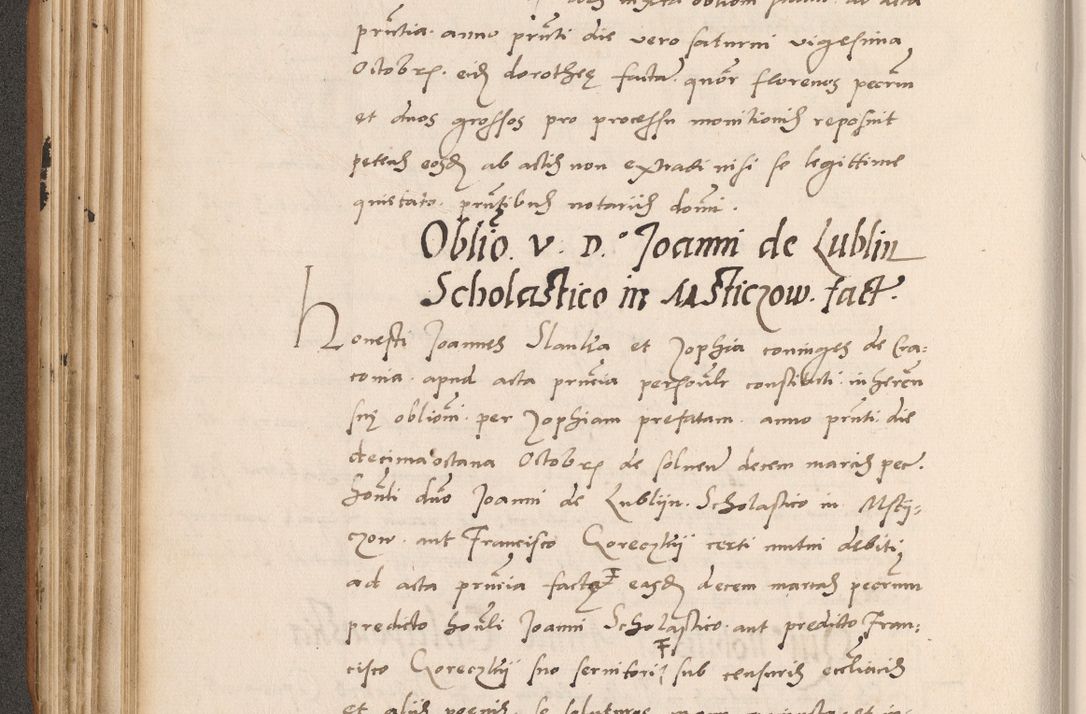 prn̄tia. anno prn̄ti die vero saturni vigesima
Octobr̄. eidȝ dorotheę facta. quōr florenos pecun̄
et duos grossos pro processu monitionis reposuit
petens eosdȝ ab actis non extradi nisi se legittime
quietato. prn̄tibus notariis domi.
Oblīo. v. D.° Joanni de Lublin
Scholastico in Msticzow. fact.
Honesti Joannes Slanka et Zophia coniuges de Cra:
couia. apud acta prn̄cia personlr̄ constituti. inheren̄
suę obliōni. per Zophiam prefatam. anno prn̄ti. die
decima octaua Octobr̄ de soluen̄ decem marcis pec.
hon̄li dn̄o Joanni de Lublijn. Scholastico in Mstij:
czow. aut Francisco Goreczkij certi mutui debiti
ad acta prn̄cia factę easdȝ decem marcas pecunn
predicto hon̄li Joanni Scholastico aut predicto Fran:
cisco Goreczkij suo seruitori sub censuris eccl̄iacis
et aliis poenis. se soluturos